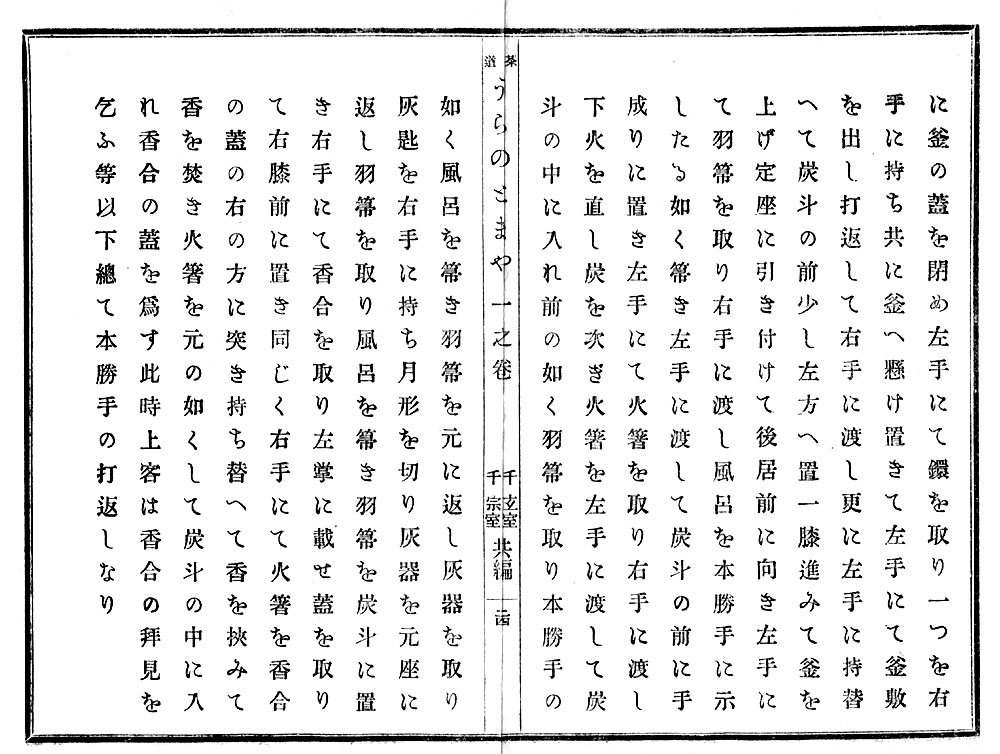 に釜の蓋を閉め左手にて鐶を取り一つを右
手に持ち共に釜へ懸け置きて左手にて釜敷
を出し打返して右手に渡し更に左手に持替
へて炭斗の前少し左方へ置一膝進みて釜を
上げ定座に引き付けて後居前に向き左手に
て羽箒を取り右手に渡し風呂を本勝手に示
したる如く箒き左手に渡して炭斗の前に手
成りに置き左手にて火箸を取り右手に渡し
下火を直し炭を次ぎ火箸を左手に渡して炭
斗の中に入れ前の如く羽箒を取り本勝手の
茶道
うらのとまや一之卷
千玄室
千宗室
共編
二四
如く風呂を箒き羽箒を元に返し灰器を取り
灰匙を右手に持ち月形を切り灰器を元座に
返し羽箒を取り風呂を箒き羽箒を炭斗に置
き右手にて香合を取り左掌に載せ蓋を取り
て右膝前に置き同じく右手にて火箸を香合
の蓋の右の方に突き持ち替へて香を挾みて
香を焚き火箸を元の如くして炭斗の中に入
れ香合の蓋を爲す此時上客は香合の拜見を
乞ふ等以下總て本勝手の打返しなり